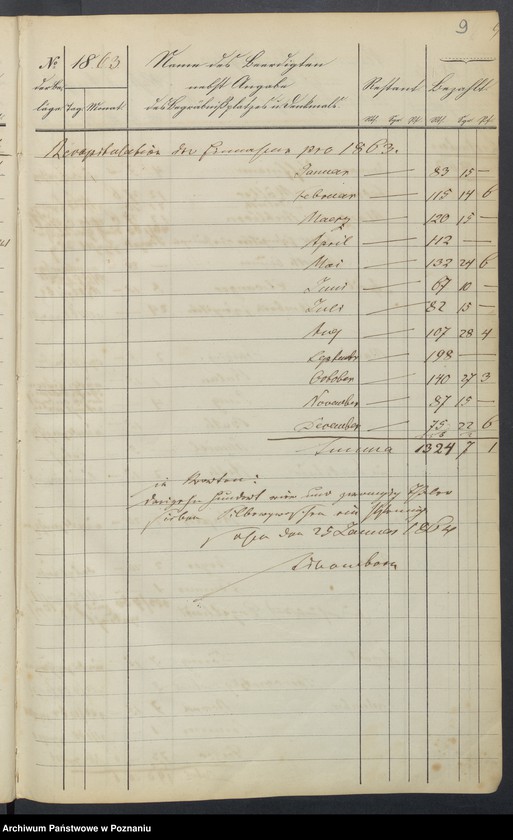 9
No 1863 Name des Beerdigten
der Be- nebst Angabe Restant Bezahlt
läge Tag Monat des Begräbnißplatzes u Denkmals
Rt Sgr Pf Rt Sgr Pf
Recapitulation der Einnahme pro 1863.
Januar — 83 15 —
Februar — 115 14 6
Maerz — 120 15 —
April — 112 —
Mai — 132 24 6
Juni — 67 10 —
Juli — 82 15 —
Aug — 107 28 4
September — 198 —
October — 140 27 3
November — 87 15 —
December — 75 22 6
Summa 1324 7 1
in Worten:
dreizehn hundert vier und zwanzig Thaler
sieben Silbergroschen ein Pfennig
Posen den 25 Januar 1864
Archiwum Państwowe w Poznaniu